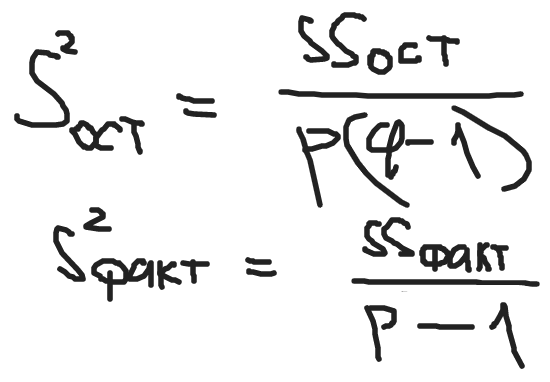 S²ост = SSост / p(q-1)
S²факт = SSфакт / p-1